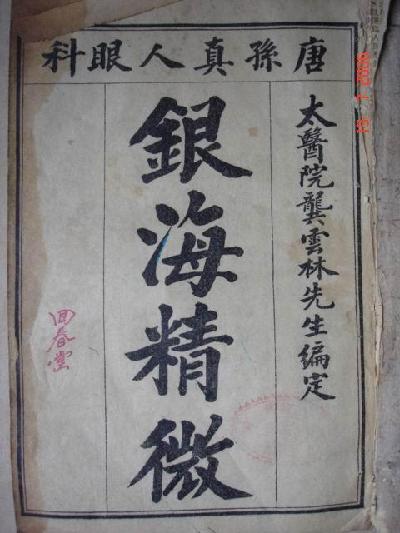 唐孫真人眼科
太醫院龔雲林先生編定
銀海精微
回春堂